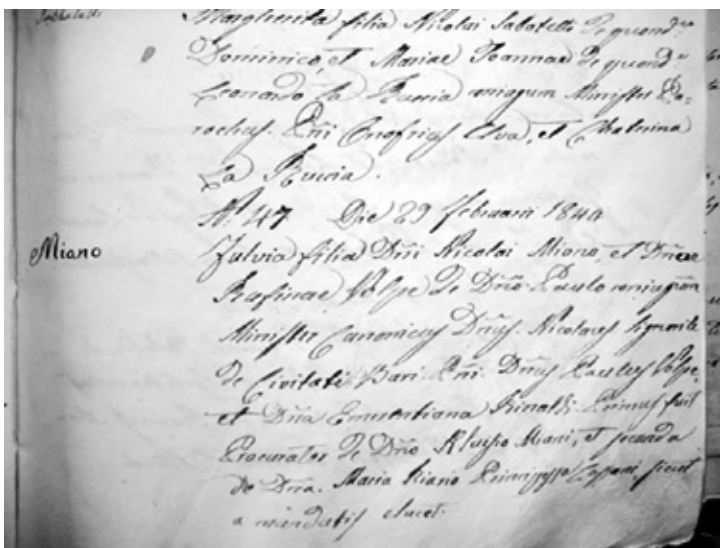 Margherita filia Nicolai Sabatelli de quond.
Dominico, et Mariae Joannae de quond.
Leonardo La Ruccia coniugum Minister Pa-
rochus. P̃ñi Onofrius Elva, et Catherina
La Ruccia.
N. 47 Die 29 Februarii 1844
Miano
Fulvia filia Dñi Nicolai Miano, et Dñae
Rufinae Volpe de Dño Paulo coniugum
Minister Canonicus Dñus Nicolaus Signorile
de Civitate Bari. P̃ñi. Dñus Paulus Volpe,
et Dña Emerentiana Rinaldi. Primus fuit
Procurator de Dño Aluisio Miani, et secunda
de Dña. Maria Riario Principissa, sicut
a mandatis elucet.